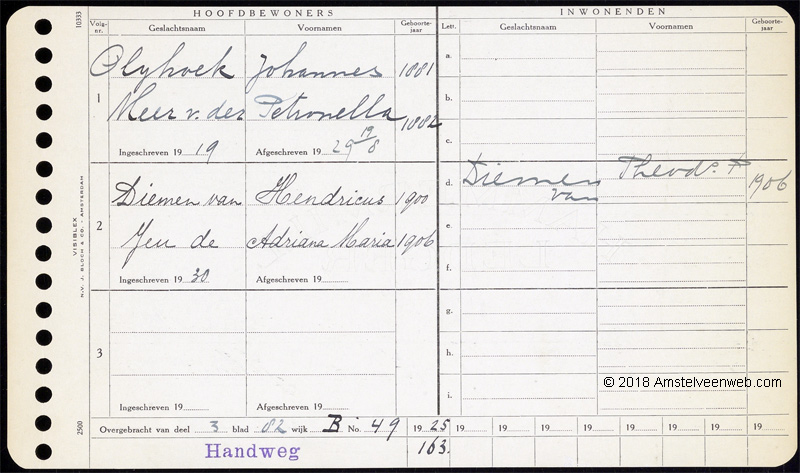 HOOFDBEWONERS
INWONENDEN
Volg-nr.
Geslachtsnaam
Voornamen
Geboorte-jaar
Lett.
Geslachtsnaam
Voornamen
Geboorte-jaar
10333
1
Olyhoek Johannes 1881
Meer v. der Petronella 1882
Ingeschreven 19 19
Afgeschreven 19 29 19/8
a.
b.
c.
2
Diemen van Hendricus 1900
Jeu de Adriana Maria 1906
Ingeschreven 19 30
Afgeschreven 19
d. Diemen van Theods. 1906
e.
f.
3
Ingeschreven 19
Afgeschreven 19
g.
h.
i.
© 2018 Amstelveenweb.com
VISIBLEX
N.V. J. BLOCH & CO. - AMSTERDAM
2500
Overgebracht van deel 3 blad 82 wijk B No. 49 19 25 19 19 19 19 19 19 19 19
163.
Handweg